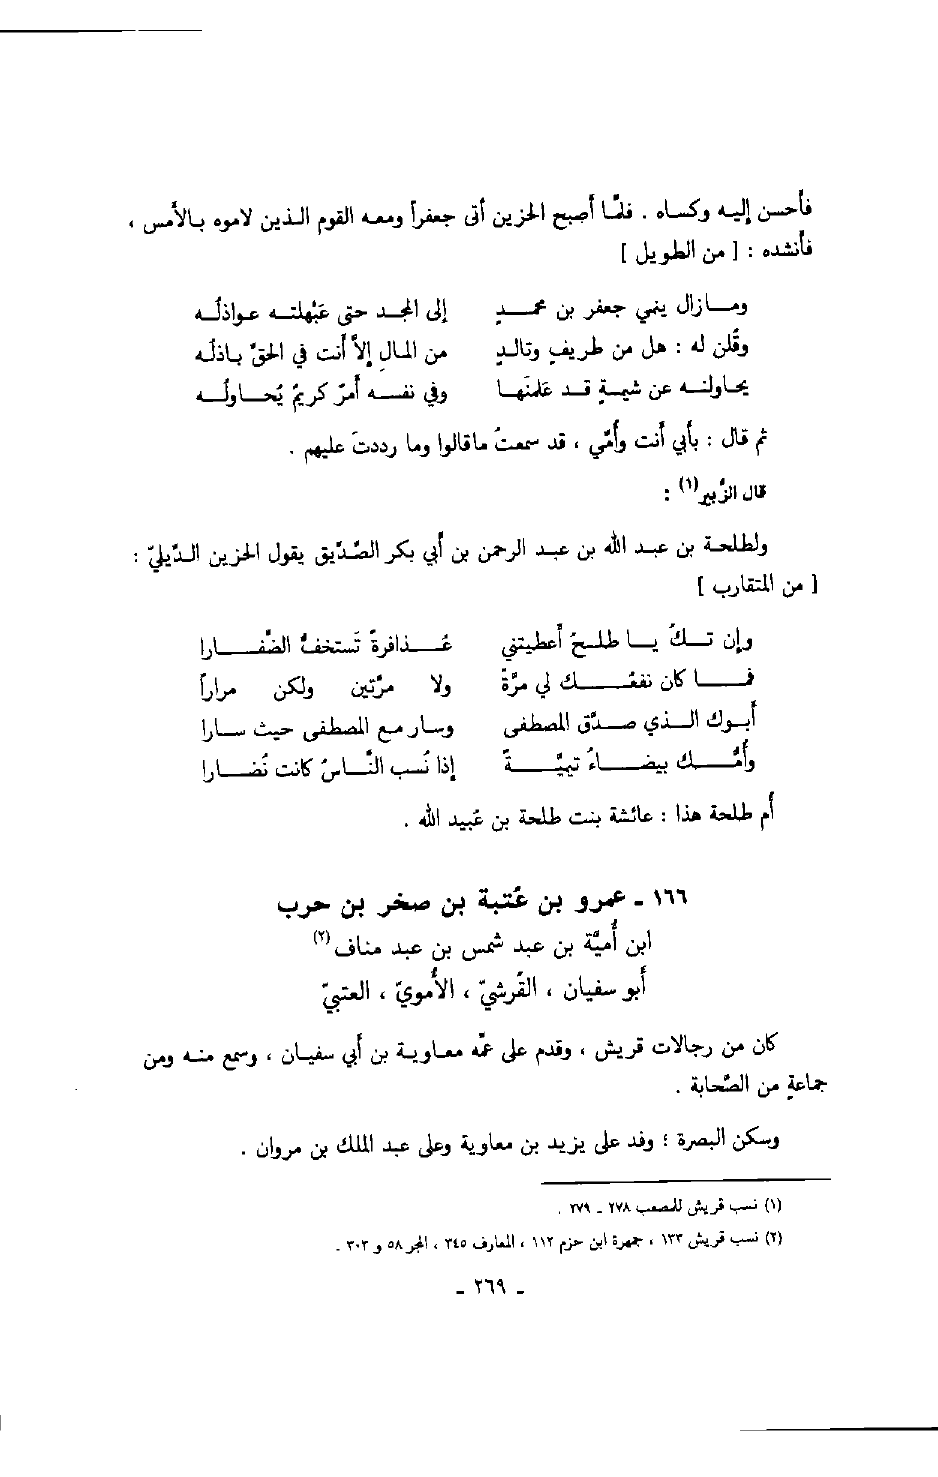 فأحسن إليه وكساه . فلمّا أصبح الحزين أتى جعفراً ومعه القوم الذين لاموه بالأمس ،
فأنشده : [ من الطويل ]
ومازال ينمي جعفر بن محمدٍ إلى المجد حتى عَبْهلته عواذلُه
وقُلن له : هل من طريفٍ وتالدٍ من المالِ إلاّ أنت في الحقّ باذلُه
يحاولنه عن شيمةٍ قد عَلمنَها وفي نفسه أمرٌ كريمٌ يُحاولُه
ثم قال : بأبي أنت وأُمّي ، قد سمعتُ ماقالوا وما رددتَ عليهم .
قال الزُّبير(١) :
ولطلحة بن عبد الله بن عبد الرحمن بن أبي بكر الصِّدّيق يقول الحزين الدِّيليّ :
[ من المتقارب ]
وإن تكُ يا طلحُ أعطيتني عُذافرةً تَستخفُّ الضَّفارا
فما كان نفعُك لي مرَّةً ولا مرَّتين ولكن مراراً
أبوك الذي صدَّق المصطفى وسار مع المصطفى حيث سارا
وأُمُّك بيضاءُ تيميَّةٌ إذا نُسب النَّاسُ كانت نُضارا
أم طلحة هذا : عائشة بنت طلحة بن عُبيد الله .
١٦٦ ـ عمرو بن عُتبة بن صخر بن حرب
ابن أُميَّة بن عبد شمس بن عبد مناف(٢)
أبو سفيان ، القُرشيّ ، الأُمويّ ، العتبيّ
كان من رجالات قريش ، وقدم على عمّه معاوية بن أبي سفيان ، وسمع منه ومن
جماعةٍ من الصَّحابة .
وسكن البصرة ؛ وفد على يزيد بن معاوية وعلى عبد الملك بن مروان .
(١) نسب قريش للمصعب ٢٧٨ ـ ٢٧٩ .
(٢) نسب قريش ١٣٣ ، جمهرة ابن حزم ١١٢ ، المعارف ٣٤٥ ، المحبر ٥٨ و ٣٠٣ .
ـ ٢٦٩ ـ